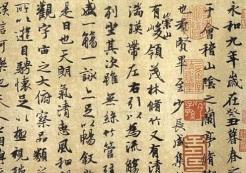 永和九年歲在癸丑暮春
會稽山陰之蘭亭
也羣賢畢至少長咸集
有崇山峻領茂林脩竹又有
湍暎帶左右引以為流觴
列坐其次雖無絲竹管
盛一觴一詠亦足以暢敘
是日也天朗氣清惠風和
觀宇宙之大俯察品類
所以遊目騁懷足以極視
娛信可樂也